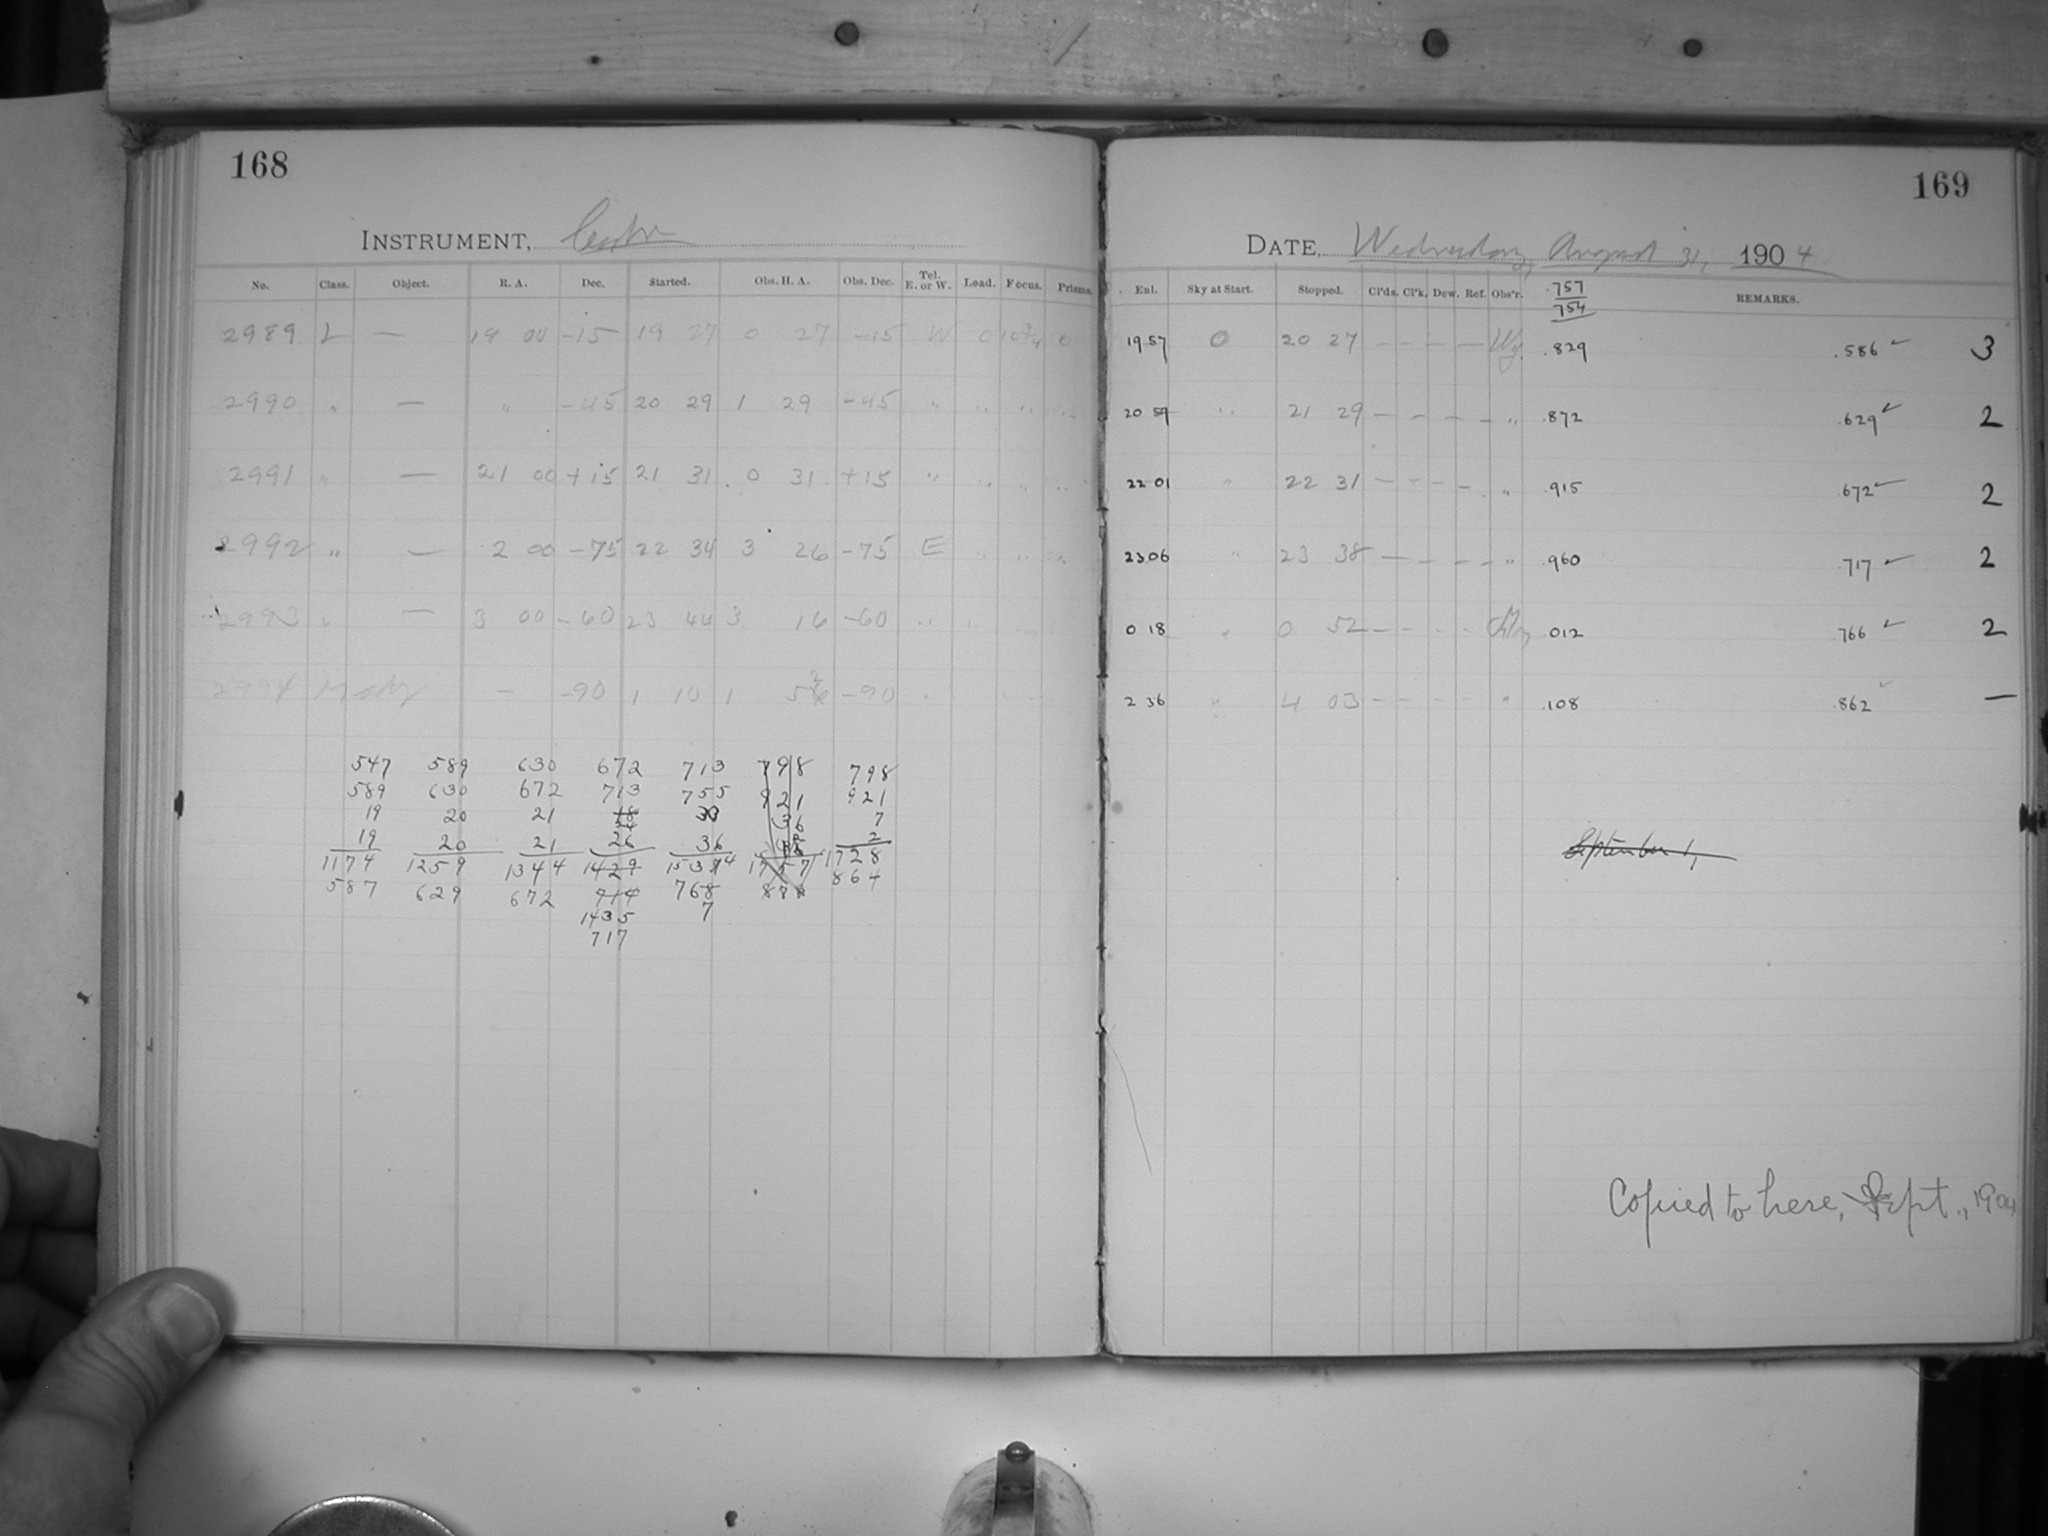 168
INSTRUMENT,
No. Class. Object. R. A. Dec. Started. Obs. H. A. Obs. Dec. Tel. E. or W. Load. Focus. Prisms.
2989 L — 19 00 -15 19 27 0 27 -15 W 0 10 3/4 0
2990 " — " -45 20 29 1 29 -45 " " " "
2991 " — 21 00 +15 21 31 0 31 +15 " " " "
2992 " — 2 00 -75 22 34 3 26 -75 E " " "
2993 " — 3 00 -60 23 44 3 16 -60 " "
2994 — -90 1 10 1 -90
547 589 630 672 713 798 798
589 630 672 713 755 921 921
19 20 21 18 36 7
19 20 21 26 36 2
1174 1259 1344 1429 1757 1728
587 629 672 714 768 878 864
1435 7
717
169
DATE, Wednesday, August 31, 1904
Enl. Sky at Start. Stopped. Cl'ds. Cl'k. Dew. Ref. Obs'r. .757 .754 REMARKS.
19 57 0 20 27 — — — — .829 .586 ✓ 3
20 59 " 21 29 — — — — " .872 .629 ✓ 2
22 01 " 22 31 — — — — " .915 .672 ✓ 2
23 06 " 23 38 — — — — " .960 .717 ✓ 2
0 18 " 0 52 — — — — .012 .766 ✓ 2
2 36 " 4 03 — — — — " .108 .862 ✓ —
September 1,
Copied to here, Sept., 1904